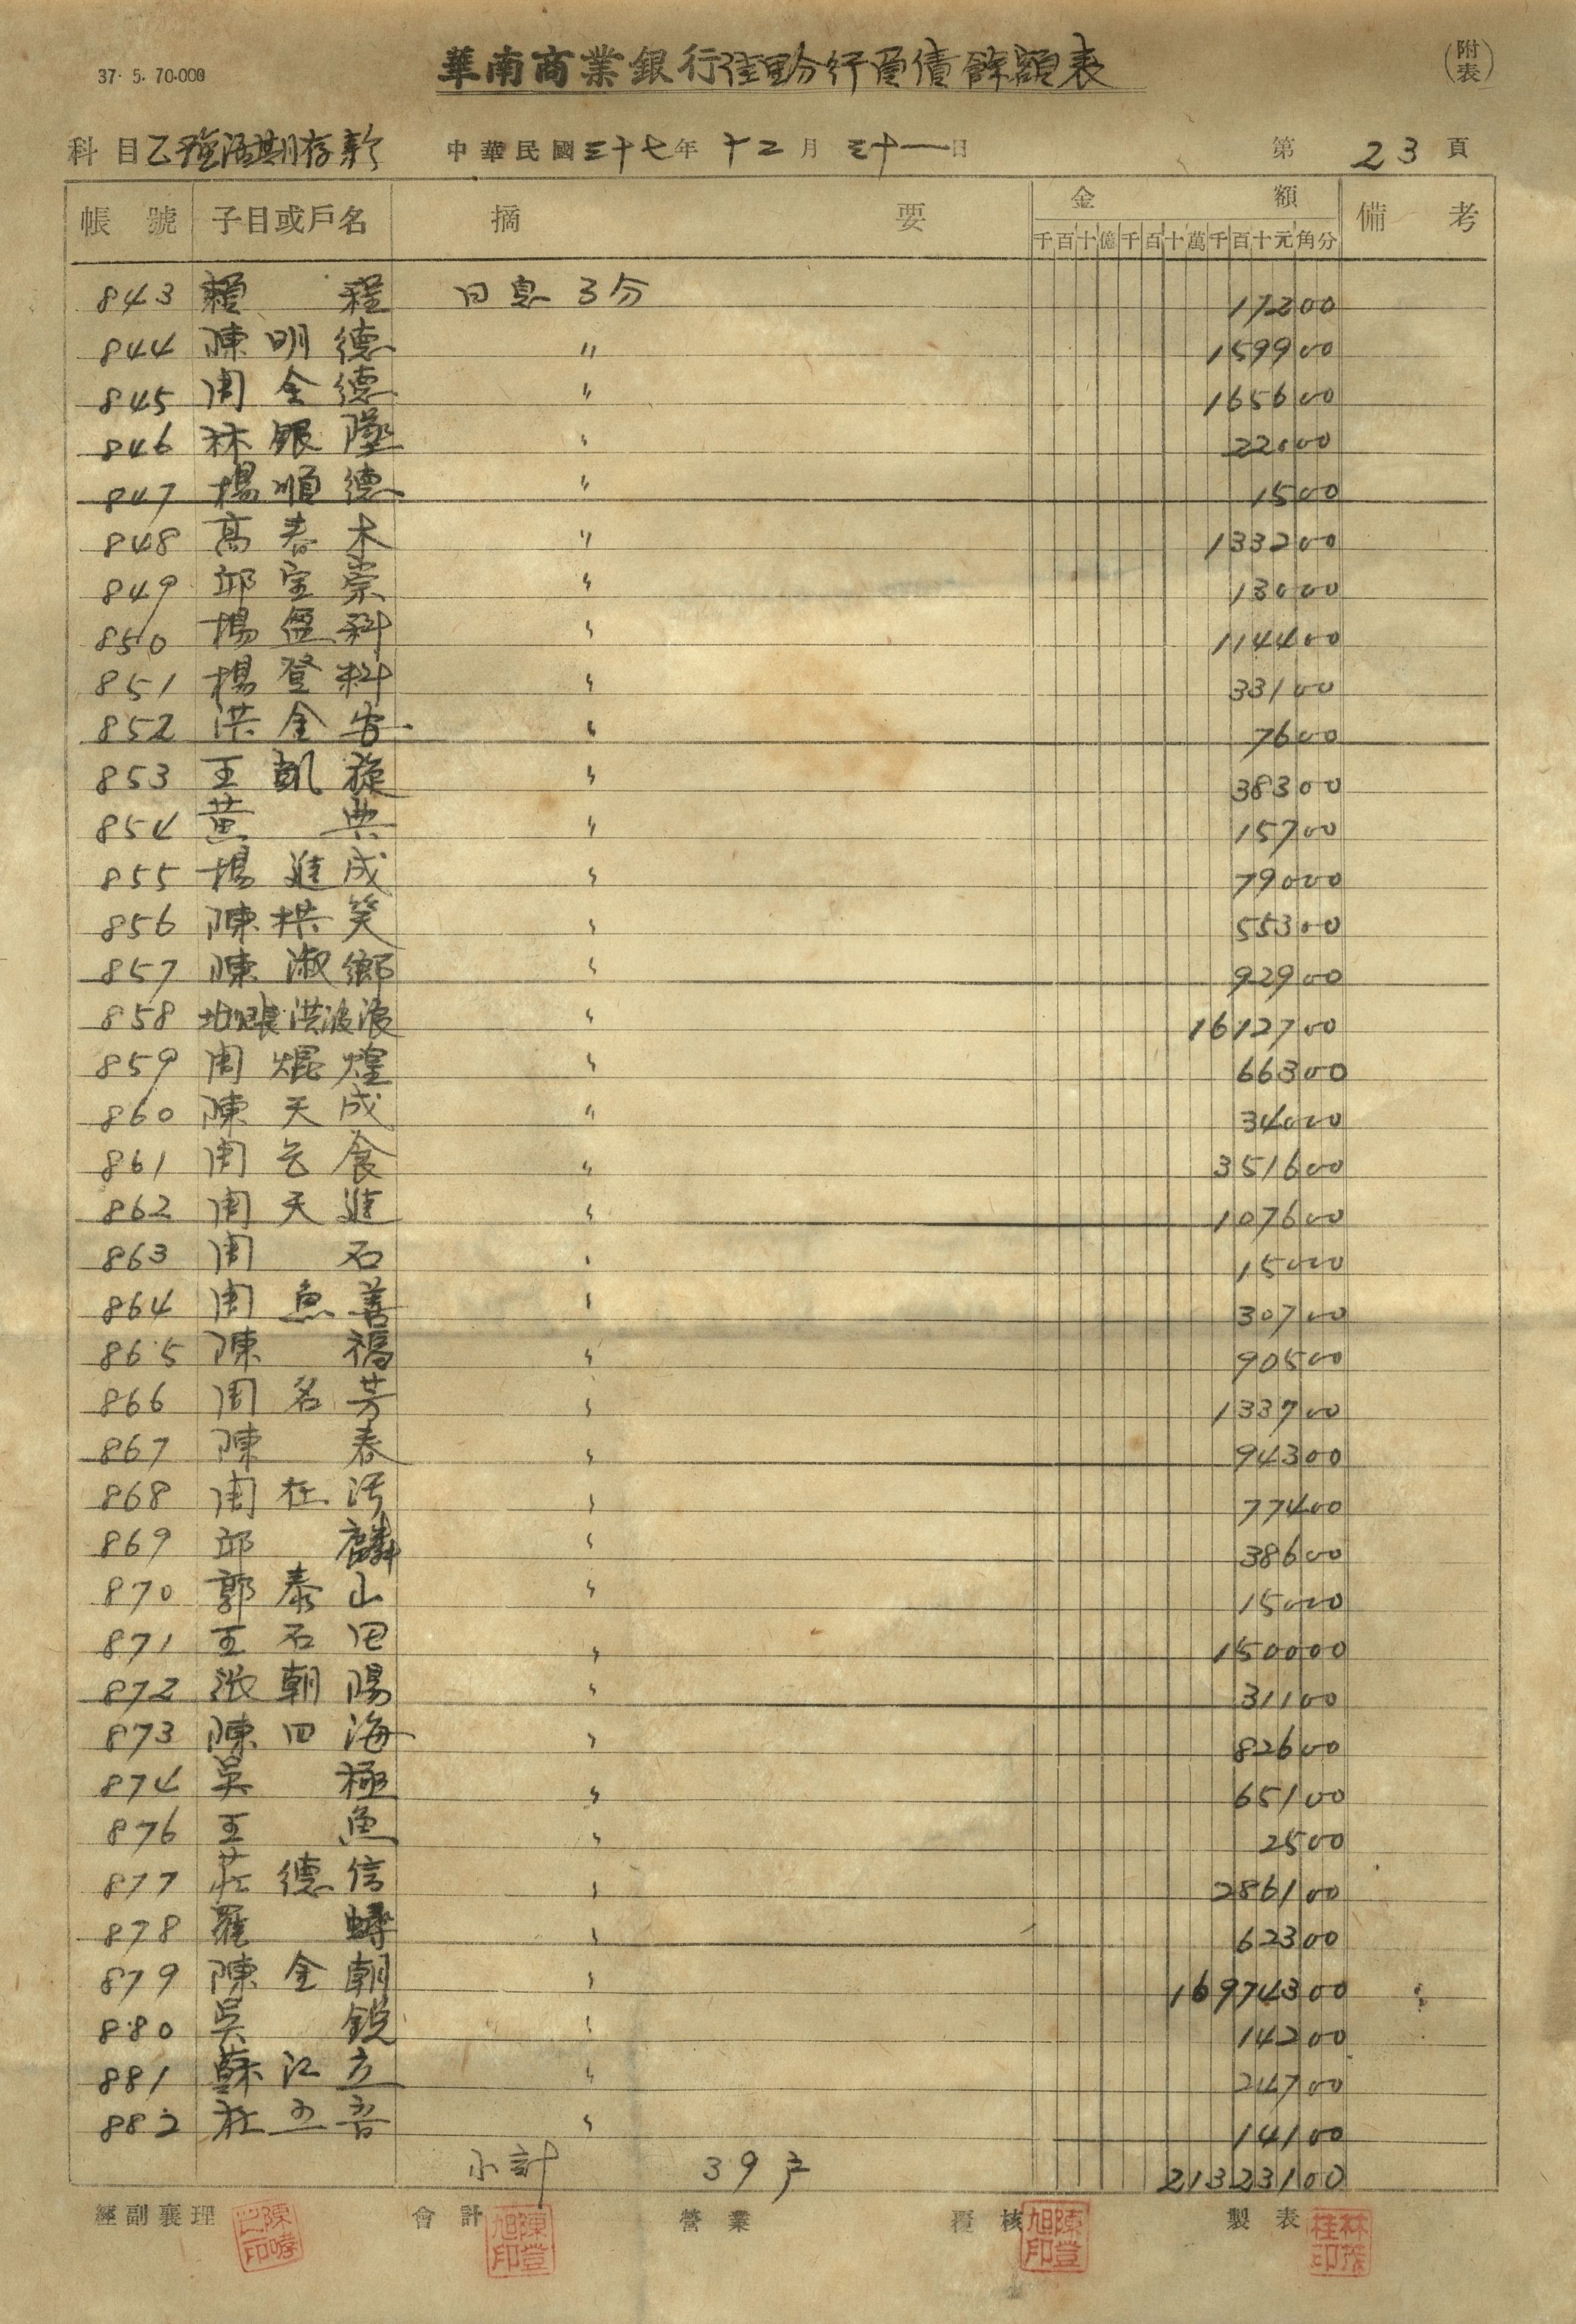 37. 5. 70.000
華南商業銀行佳里分行負債餘額表
(附表)
科目 乙種活期存款 中華民國三十七年十二月三十一日 第 23 頁
帳號 子目或戶名 摘要 金額 備考
千百十億千百十萬千百十元角分
843 賴 程 日息 3分 17200
844 陳明德 〃 159900
845 周全德 〃 165600
846 林銀墜 〃 22000
847 楊順德 〃 1500
848 高春木 〃 133200
849 邱宝崇 〃 13000
850 楊盈科 〃 114400
851 楊登科 〃 33100
852 洪全安 〃 7600
853 王凱旋 〃 38300
854 黃 典 〃 15700
855 楊進成 〃 79000
856 陳栱笑 〃 55300
857 陳淑鄉 〃 92900
858 洪波浪 〃 1612700
859 周焜煌 〃 66300
860 陳天成 〃 34000
861 周乞食 〃 351600
862 周天進 〃 107600
863 周 石 〃 15000
864 周魚善 〃 30700
865 陳 福 〃 90500
866 周名芳 〃 133700
867 陳 春 〃 94300
868 周在 〃 77400
869 邱 麟 〃 38600
870 郭泰山 〃 15000
871 王石 〃 150000
872 朝陽 〃 31100
873 陳四海 〃 82600
874 吳 極 〃 65100
876 王 魚 〃 2500
877 莊德信 〃 286100
878 羅 蟳 〃 62300
879 陳全朝 〃 16974300
880 吳 銳 〃 14200
881 蘇江立 〃 24700
882 五音 〃 14100
小計 39戶 21323100
經副襄理 會計 營業 覆核 製表
陳登旭印
陳登旭印
林茂桂印